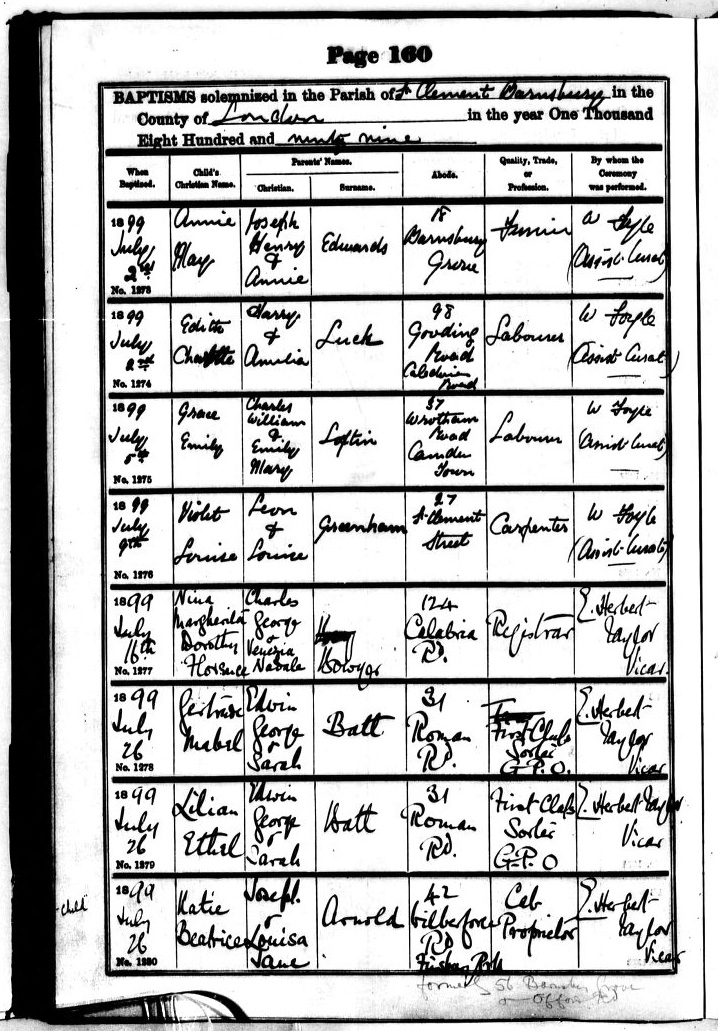 Page 160
BAPTISMS solemnized in the Parish of St Clement Barnsbury in the
County of London in the year One Thousand
Eight Hundred and ninety nine
When Baptized.
Child's Christian Name.
Parents' Names.
Christian.
Surname.
Abode.
Quality, Trade, or Profession.
By whom the Ceremony was performed.
1899
July
2nd
No. 1273
Annie
May
Joseph
Henry
&
Annie
Edwards
18
Barnsbury
Grove
W Foyle
(Assist Curate)
1899
July
2nd
No. 1274
Edith
Charlotte
Harry
&
Amelia
Luck
98
Gooding
Road
Caledonian
Road
Labourer
W Foyle
(Assist Curate)
1899
July
5th
No. 1275
Grace
Emily
Charles
William
&
Emily
Mary
Loftin
37
Wrotham
Road
Camden
Town
Labourer
W Foyle
(Assist Curate)
1899
July
9th
No. 1276
Violet
Louise
Leon
&
Louise
Greenham
27
St Clement
Street
Carpenter
W Foyle
(Assist Curate)
1899
July
16th
No. 1277
Nina
Margherita
Dorothy
Florence
Charles
George
&
Venezia
Natale
Bowyer
124
Calabria
Rd.
Registrar
E. Herbert
Taylor
Vicar.
1899
July
26
No. 1278
Gertrude
Mabel
Edwin
George
&
Sarah
Batt
31
Roman
Rd.
First Class
Sorter
G.P.O.
E. Herbert
Taylor
Vicar
1899
July
26
No. 1279
Lilian
Ethel
Edwin
George
&
Sarah
Batt
31
Roman
Rd.
First Class
Sorter
G.P.O
E. Herbert Taylor
Vicar
Child
1899
July
26
No. 1280
Katie
Beatrice
Joseph
&
Louisa
Jane
Arnold
42
Wilberforce
Rd
Finsbury Park
Cab
Proprietor
E. Herbert
Taylor
Vicar
formerly 56 Barnsbury Grove
Offord Rd